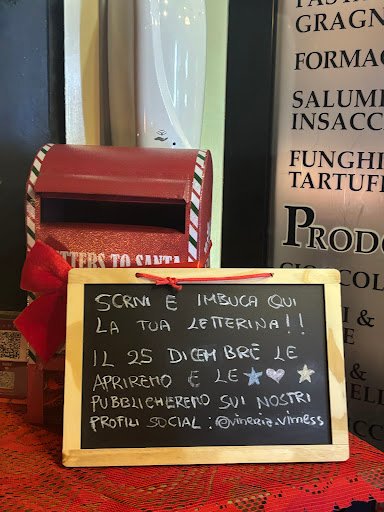 GRAGN
FORMAG
SALUMI
INSACC
FUNGHI
TARTUF
PRODO
TTERS TO SANTA
SCRIVI E IMBUCA QUI
LA TUA LETTERINA!!
IL 25 DICEMBRE LE
APRIREMO E LE
PUBBLICHEREMO SUI NOSTRI
PROFILI SOCIAL: @vineria.vimess